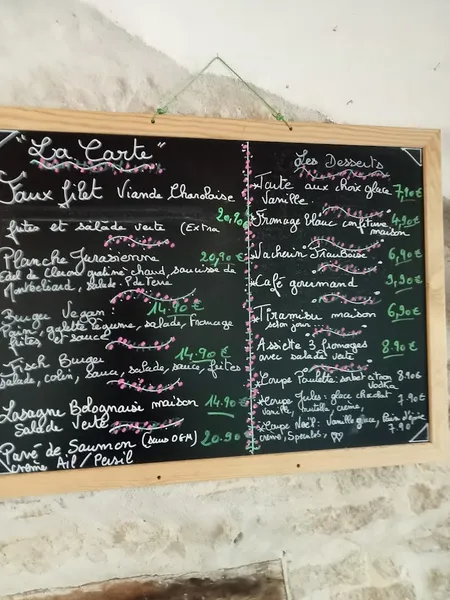 "La Carte"
Faux filet Viande Charolaise
20,90€
frites et salade verte (Extra
Planche Jurassienne 20,90€
chaud, saucisse de
Montbeliard, salade. P de Terre
Burger Vegan: 14.90€
Pain, galette légume, salade, fromage
frites et sauce
Fisch Burger 14.90€
salade, colin, sauce, salade, sauce, frites
Lasagne Bolognaise maison 14.90€
Salade Verte
Pavé de Saumon (sans OGM) 20.90€
crème Ail / Persil
Les Desserts
Tarte aux choix glace 7,90€
Vanille
Fromage blanc confiture 4.90€
maison
Vacherin Framboise 6,90€
Café gourmand 9,90€
Tiramisu maison 6,90€
selon jour
Assiette 3 fromages 8.90€
avec salade verte
Coupe Paulette: sorbet citron 8.90€
Vodka
Coupe Jules: glace chocolat 7.90€
Vanille, Nutella, crème,
Coupe Noël: Vanille glace, Pain d'épice
crème, Speculos, 7.90